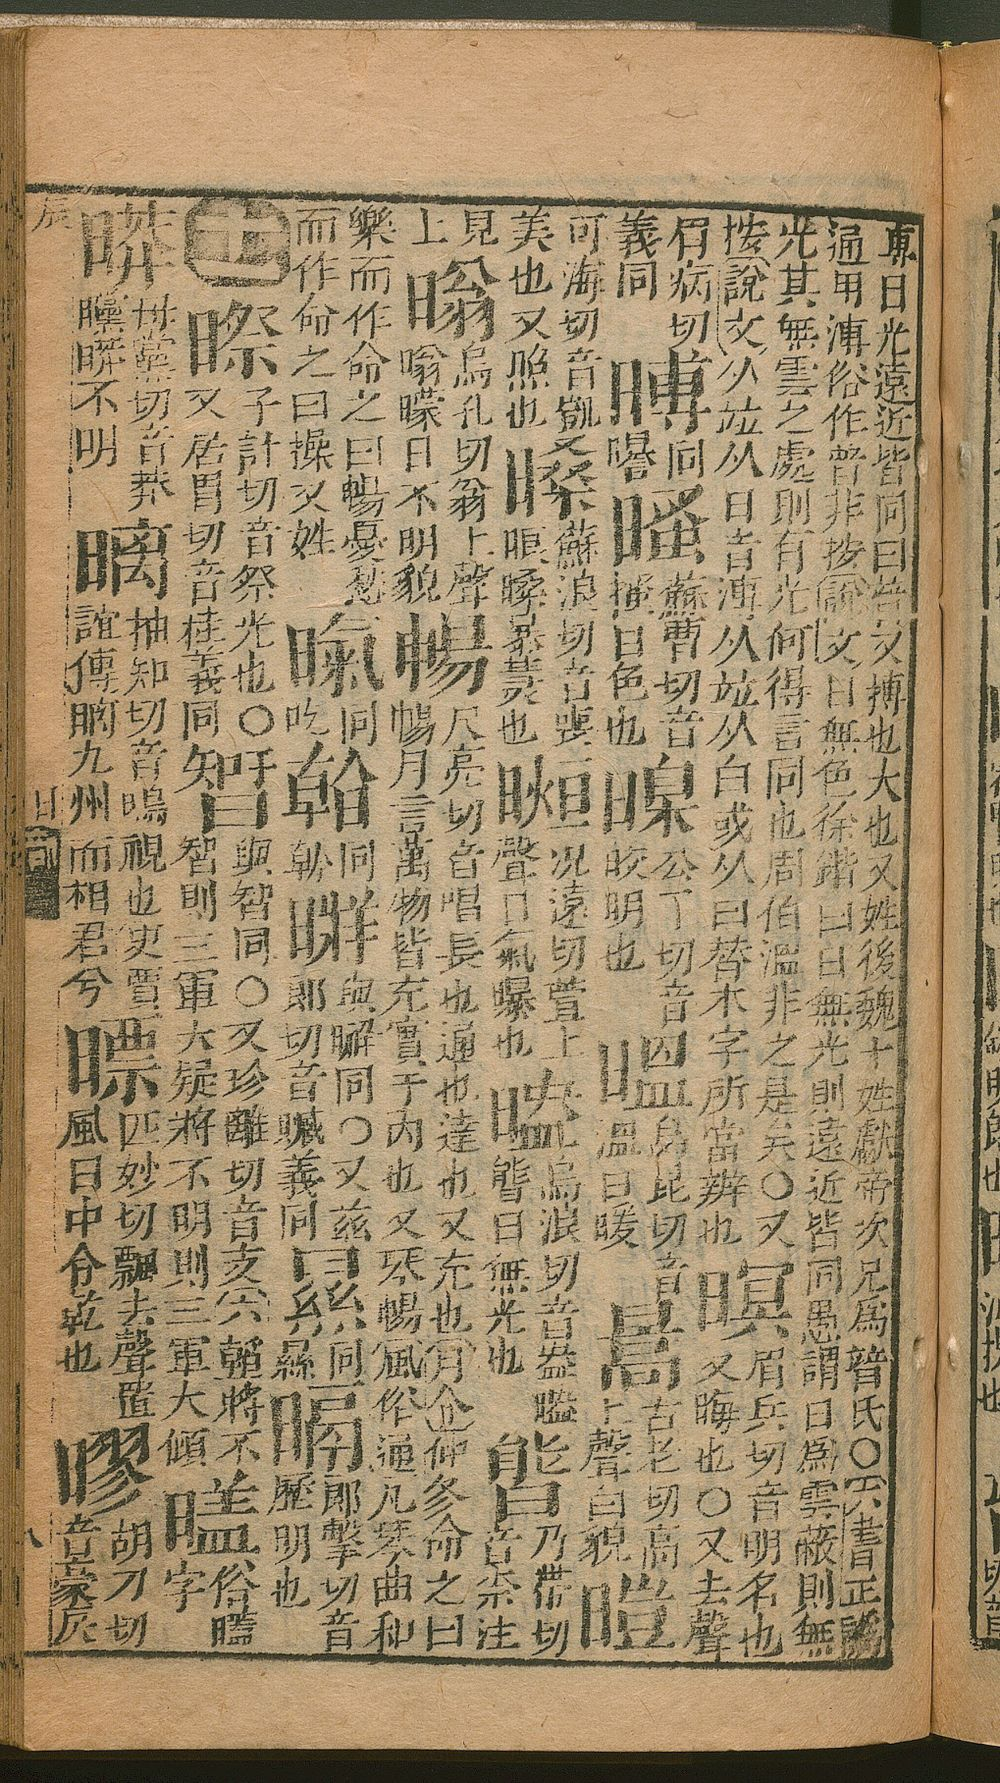 專日光遠近皆同曰暜又博也大也又姓後魏十姓獻帝次兄爲暜氏○六書正譌
通用溥俗作普非按說文日無色徐鍇曰日無光則遠近皆同愚謂日爲雲蔽則無
光其無雲之處則有光何得言同也周伯溫非之是矣○又
按說文从竝从日音溥从竝从白或从曰替本字所當辨也
暝
眉兵切音明名也
又晦也○又去聲
眉病切
義同
同
蘇曹切音
搔日色也
公丁切音
皎明也
㬈
烏昆切音
溫日暖
暠
古老切高
上聲白貌
暟
可海切音凱又
美也又照也
㬕
蘇浪切音喪
也
暅
况遠切音萱上
聲日氣曝也
烏浪切音盎
日無光也
乃帶切
音柰注
見
上
暡
烏孔切翁上聲
暡曚日不明貌
暢
尺亮切音唱長也通也達也又充也月企仲冬命之曰
暢月言萬物皆充實于內也又琴暢風俗通凡琴曲和
樂而作命之曰暢憂愁
而作命之曰操又姓
暣
同
吃
同
同○又兹
郎切音贜義同
㬎
同
郎擊切音
歷明也
十一
暩
子計切音祭光也○
又居胃切音桂義同
智
與智同○又珍離切音支六韜將不
智則三軍大疑將不明則三軍大傾
俗
字
母黨切音莽
不明
抽知切音螭視也史賈
誼傳瞝九州而相君兮
㬓
匹妙切飄去聲置
風日中令乾也
胡刀切
音豪辰
辰
日部
八